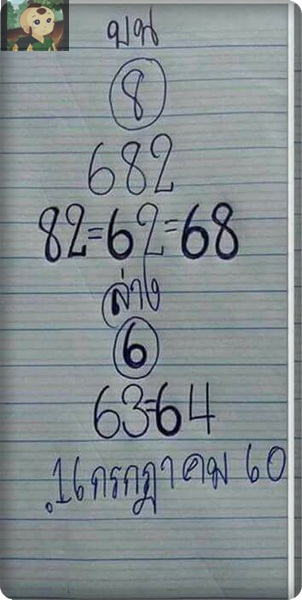 บน
8
682
82=62=68
ล่าง
6
63=64
16 กรกฎาคม 60